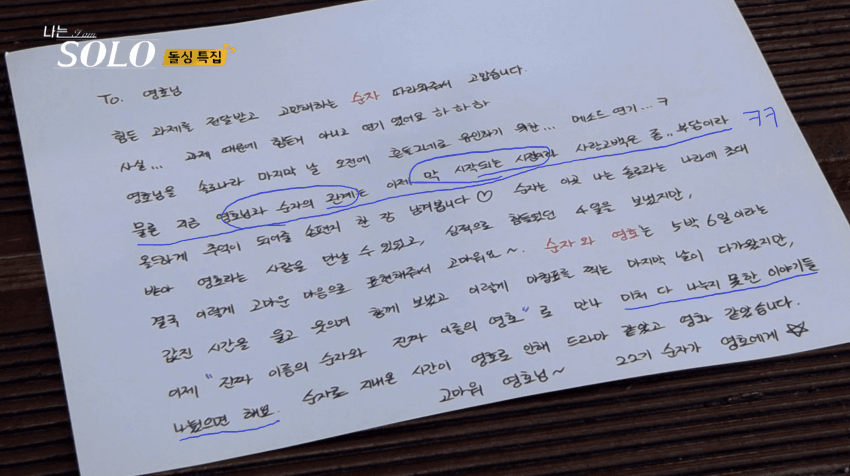 나는 I am
SOLO 돌싱 특집
To. 영호님
힘든 과제를 전달받고 고민하는 순자 따라와줘서 고맙습니다.
사실... 과제 때문에 힘든거 아니고 연기 였어요 하 하 하
영호님을 솔로나라 마지막 날 오전에 유인하기 위한... 메소드 연기... ㅋ
ㅋㅋ
물론 지금 영호님과 순자의 관계는 이제 막 시작되는 시점이라 사랑고백은 좀.. 부담이라
올드하게 추억이 되어줄 손편지 한 장 남겨봅니다♡ 순자는 이곳 나는 솔로라는 나라에 초대
받아 영호라는 사람을 만날 수 있었고, 심적으로 힘들었던 4일을 보냈지만,
결국 이렇게 고마운 마음으로 표현해주셔서 고마워요~. 순자와 영호는 5박 6일이라는
값진 시간을 울고 웃으며 함께 보냈고 이렇게 마침표를 찍는 마지막 날이 다가왔지만,
이제 "진짜 이름의 순자와 진짜 이름의 영호"로 만나 미처 다 나누지 못한 이야기들
나눴으면 해요. 순자로 지내온 시간이 영호로 인해 드라마 같았고 영화 같았습니다.
고마워 영호님~ 22기 순자가 영호에게 ☆